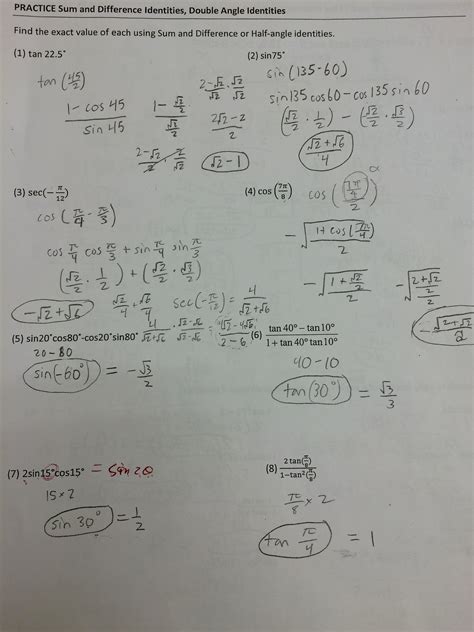 PRACTICE Sum and Difference Identities, Double Angle Identities
Find the exact value of each using Sum and Difference or Half-angle identities.
(1) tan 22.5°
tan (45/2)
(1 - cos 45)/(sin 45)
(1 - √2/2)/(√2/2)
(2-√2)/√2 · √2/√2
(2√2 - 2)/2
(2-√2)/2 · 2/√2
√2 - 1
(2) sin75°
sin (135-60)
sin135 cos60 - cos135 sin60
(√2/2 · 1/2) - (√2/2 · √3/2)
(√2+√6)/4
(3) sec(-π/12)
cos (π/4 - π/3)
cos π/4 cos π/3 + sin π/4 sin π/3
(√2/2 · 1/2) + (√2/2 · √3/2)
√2/4 + √6/4
sec(-π/12) = 4/(√2+√6) · (√2-√6)/(√2-√6) = (4√2-4√6)/(2-6)
-√2+√6
(4) cos (7π/8)
cos ((7π/4)/2)
-√((1+cos(7π/4))/2)
-√((1+√2/2)/2)
-√(((2+√2)/2)/2)
-√(2+√2)/2
(5) sin20°cos80°-cos20°sin80°
20-80
sin(-60°) = -√3/2
(6) (tan 40° - tan 10°)/(1 + tan 40° tan 10°)
40-10
tan(30°) = √3/3
(7) 2sin15°cos15° = sin 2θ
15 × 2
sin 30° = 1/2
(8) (2 tan(π/8))/(1-tan²(π/8))
π/8 × 2
tan π/4 = 1